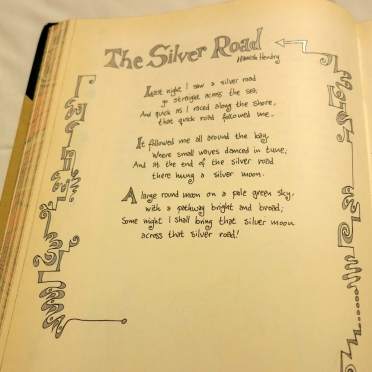 The Silver Road
Hamish Hendry
Last night I saw a silver road
go straight across the sea;
And quick as I raced along the shore,
that quick road followed me.
It followed me all around the bay,
Where small waves danced in tune,
And at the end of the silver road
there hung a silver moon.
A large round moon on a pale green sky,
with a pathway bright and broad;
Some night I shall bring that silver moon
across that silver road!